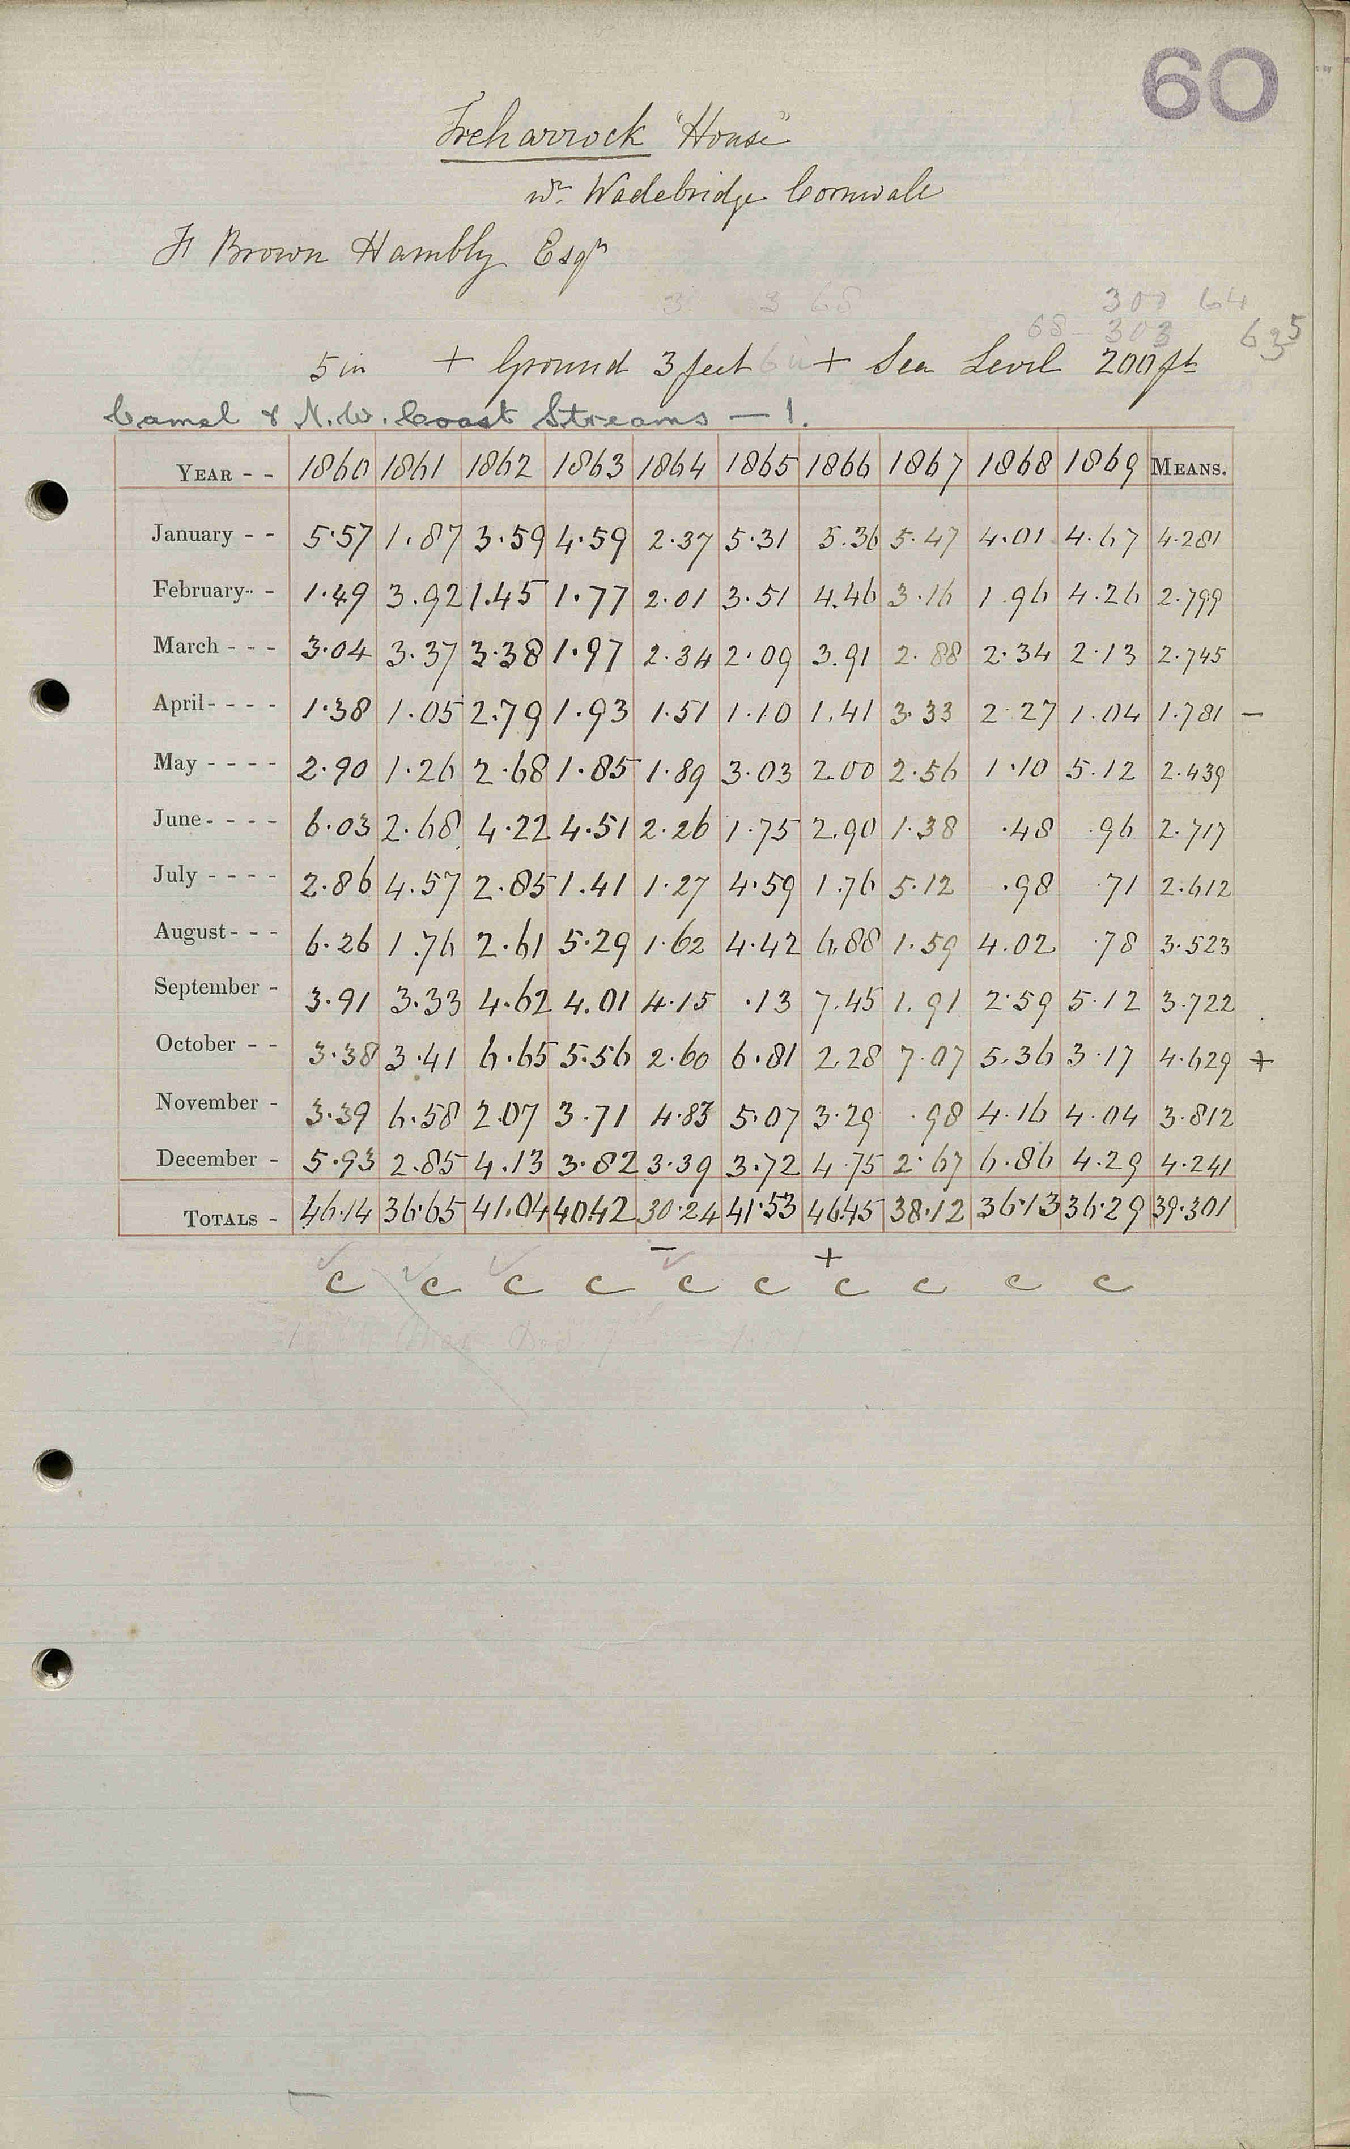 60
Treharrock "House"
nr. Wadebridge. Cornwall
F Brown Hambly Esqr
307 64
68 - 303 635
5 in + Ground 3 feet 6 in + Sea Level 200 ft
Camel & N.W. Coast Streams — 1.
YEAR - - 1860 1861 1862 1863 1864 1865 1866 1867 1868 1869 MEANS.
January - - 5.57 1.87 3.59 4.59 2.37 5.31 5.36 5.47 4.01 4.67 4.281
February - - 1.49 3.92 1.45 1.77 2.01 3.51 4.46 3.16 1.96 4.26 2.799
March - - - 3.04 3.37 3.38 1.97 2.34 2.09 3.91 2.88 2.34 2.13 2.745
April - - - - 1.38 1.05 2.79 1.93 1.51 1.10 1.41 3.33 2.27 1.04 1.781 —
May - - - - 2.90 1.26 2.68 1.85 1.89 3.03 2.00 2.56 1.10 5.12 2.439
June - - - - 6.03 2.68 4.22 4.51 2.26 1.75 2.90 1.38 .48 .96 2.717
July - - - - 2.86 4.57 2.85 1.41 1.27 4.59 1.76 5.12 .98 .71 2.612
August - - - 6.26 1.76 2.61 5.29 1.62 4.42 6.88 1.59 4.02 .78 3.523
September - 3.91 3.33 4.62 4.01 4.15 .13 7.45 1.91 2.59 5.12 3.722
October - - 3.38 3.41 6.65 5.56 2.60 6.81 2.28 7.07 5.36 3.17 4.629 +
November - 3.39 6.58 2.07 3.71 4.83 5.07 3.29 .98 4.16 4.04 3.812
December - 5.93 2.85 4.13 3.82 3.39 3.72 4.75 2.67 6.86 4.29 4.241
TOTALS - 46.14 36.65 41.04 40.42 30.24 41.53 46.45 38.12 36.13 36.29 39.301
— +
c c c c c c c c c c